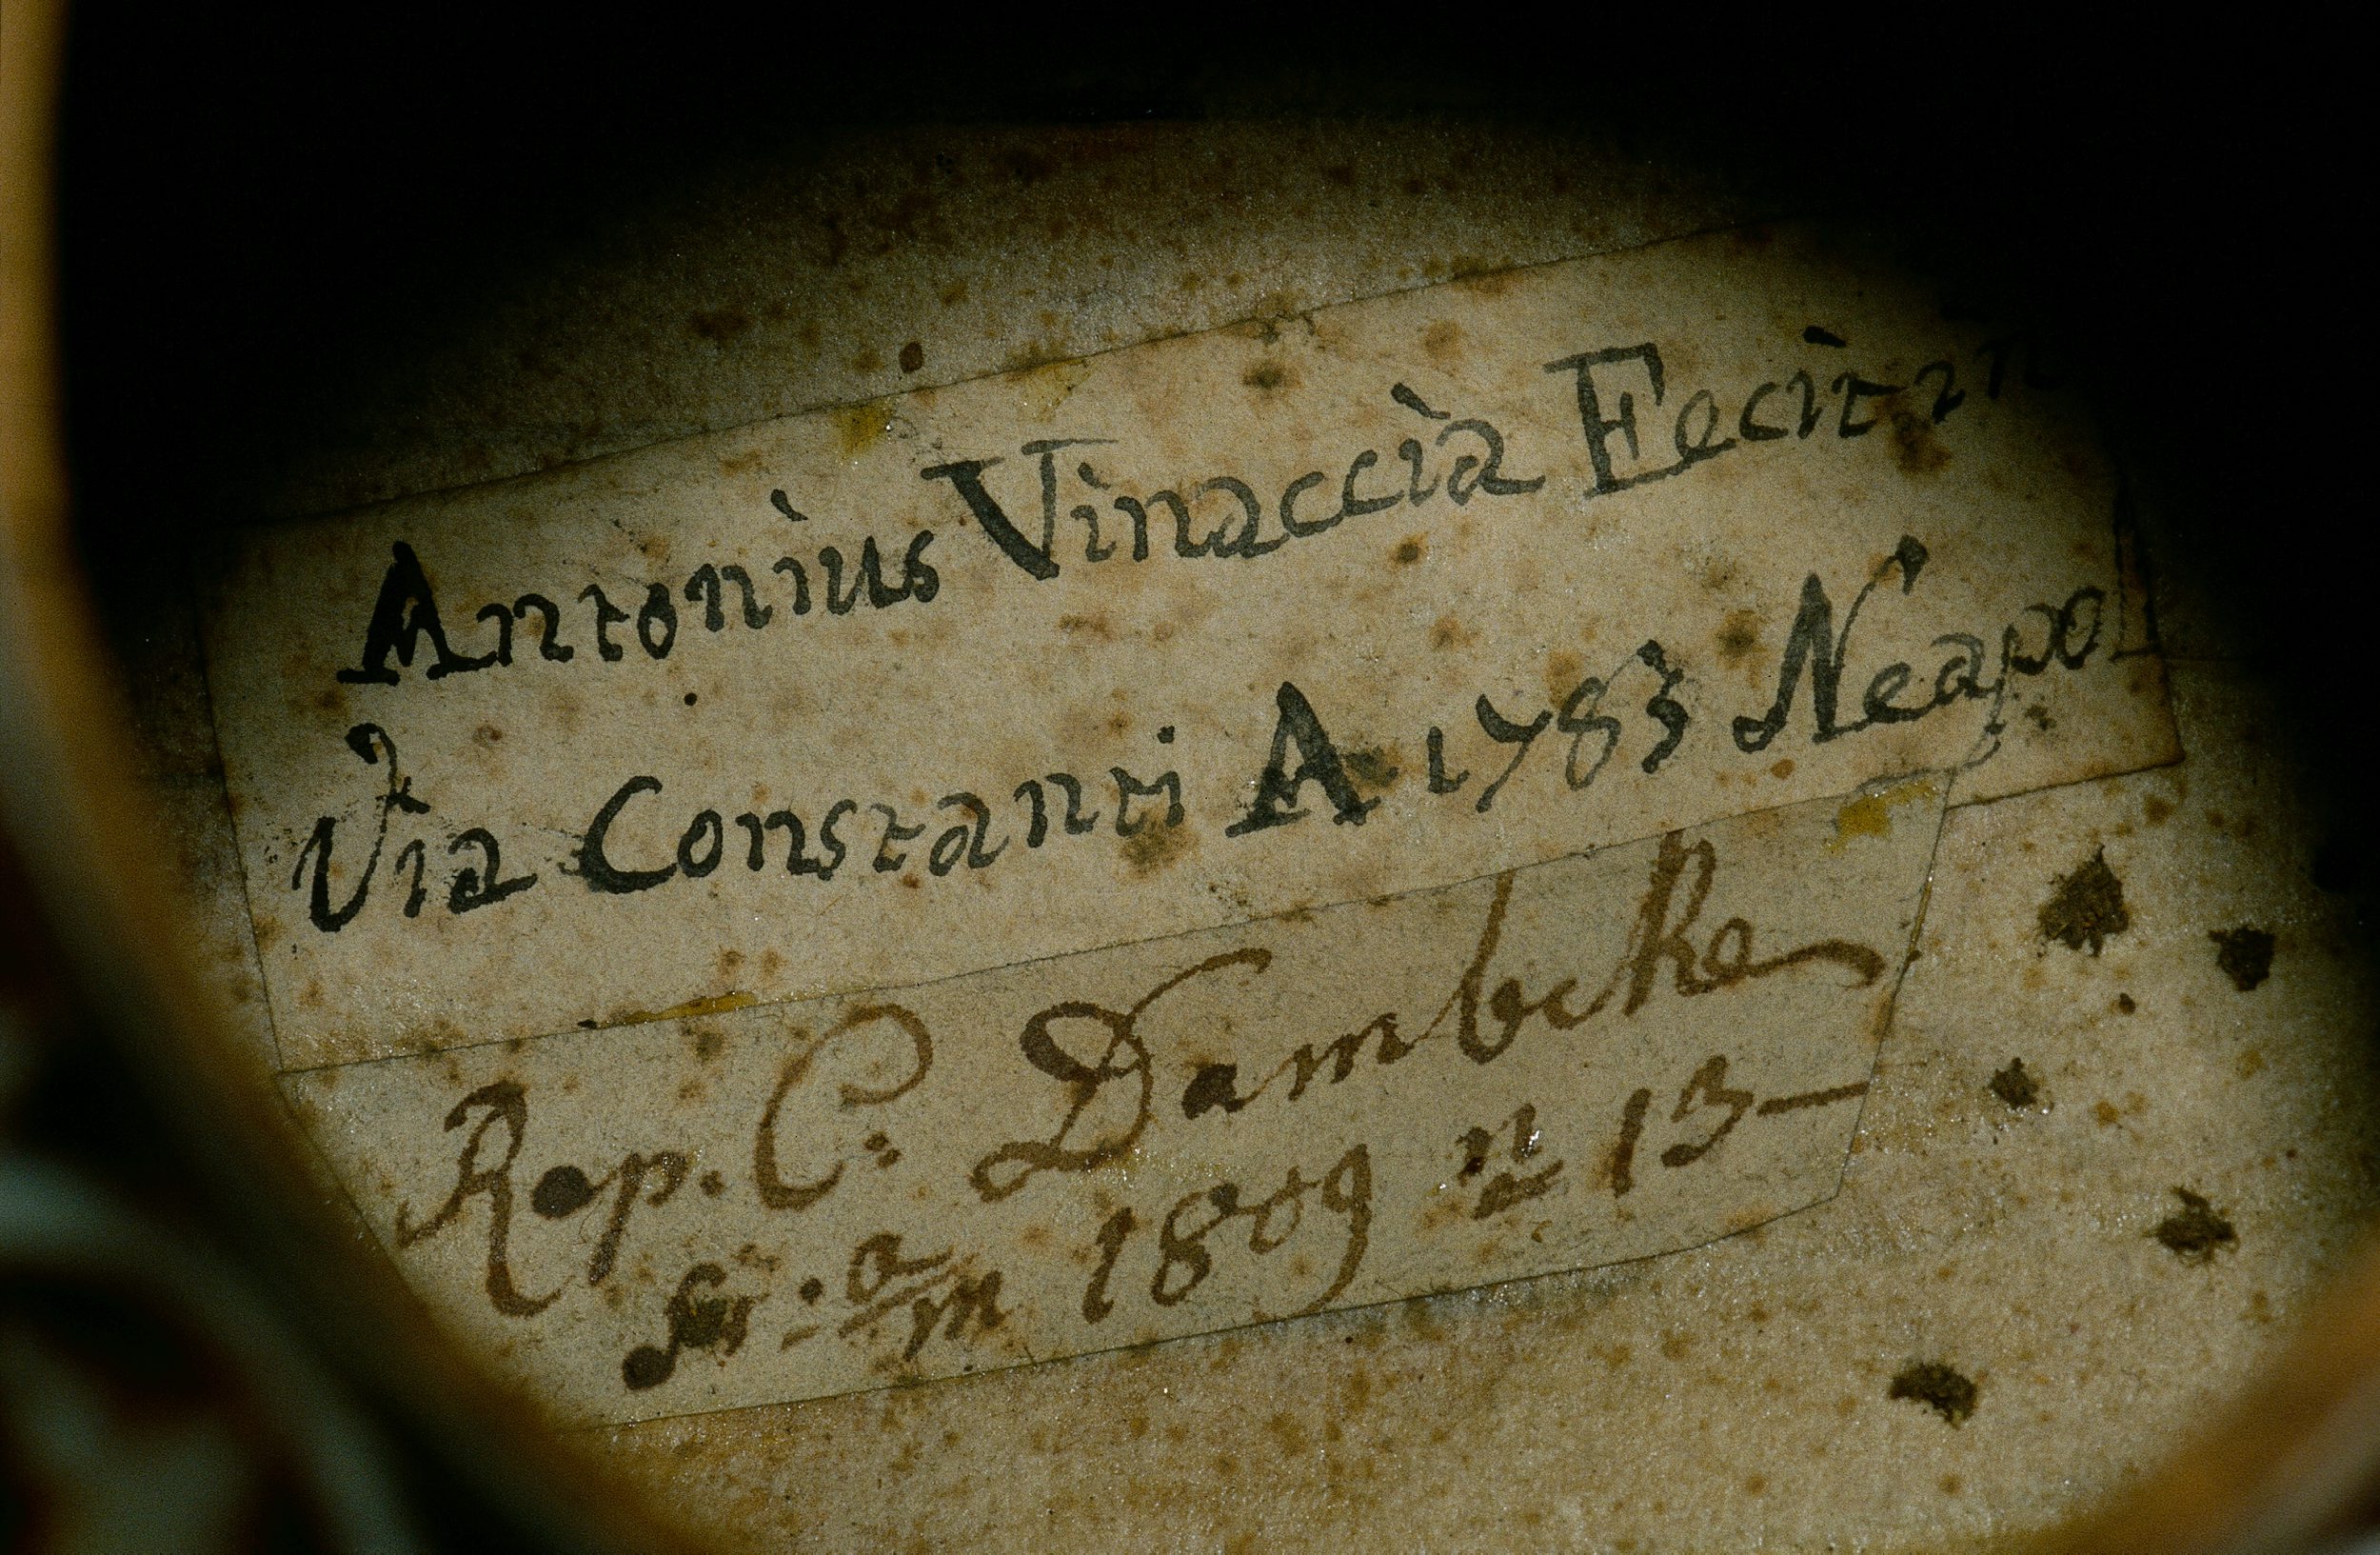 Antonius Vinaccia Fecit in
Via Constanti A 1783 Neapoli
Rep. C. Dambcke
a/m 1809 n 13